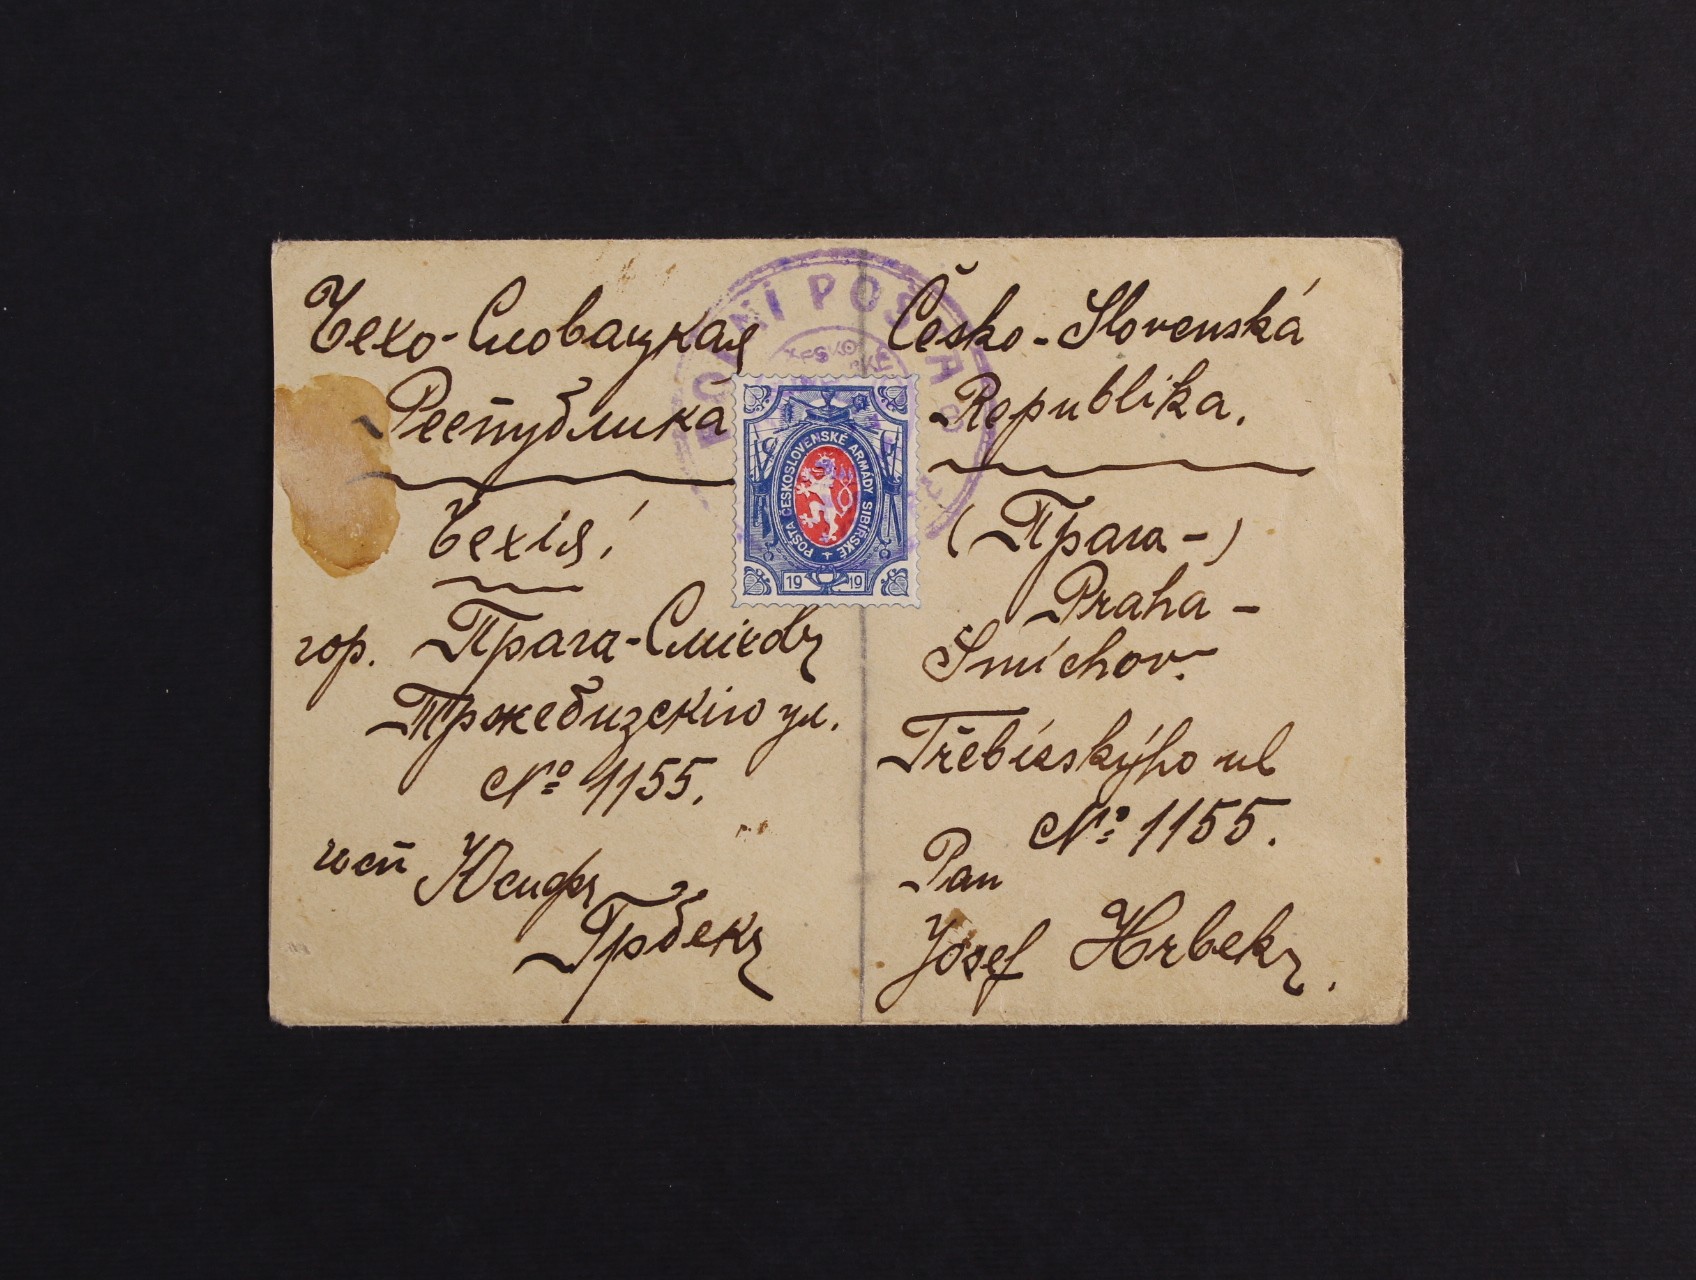 Чехо-Словацкая
Республика
Чехія!
гор. Прага-Сміховъ
Тржебизскіго ул.
№ 1155.
госп Юсифъ
Грбекъ
POLNÍ POŠTA
ČESKO
POŠTA ČESKOSLOVENSKÉ ARMÁDY SIBIŘSKÉ
19 19
Česko-Slovenská
Republika.
(Прага-)
Praha-
Smíchov.
Třebízskýho ul
№ 1155.
Pan
Josef Hrbek,.